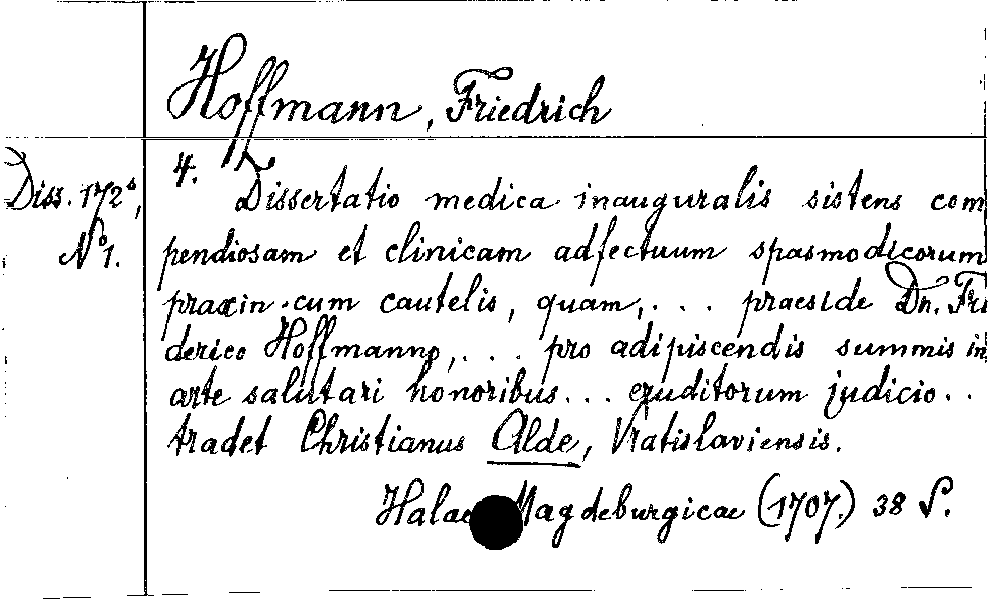 Hoffmann, Friedrich
Diss. 172⁸,
Nº 1.
4. Dissertatio medica inauguralis sistens com
pendiosam et clinicam adfectuum spasmodicorum
praxin cum cautelis, quam, . . . praeside Dn. Fri
derico Hoffmanno, . . . pro adipiscendis summis in
arte salutari honoribus . . . eruditorum judicio . .
tradet Christianus Alde, Vratislaviensis.
Halae Magdeburgicae (1707.) 38 S.